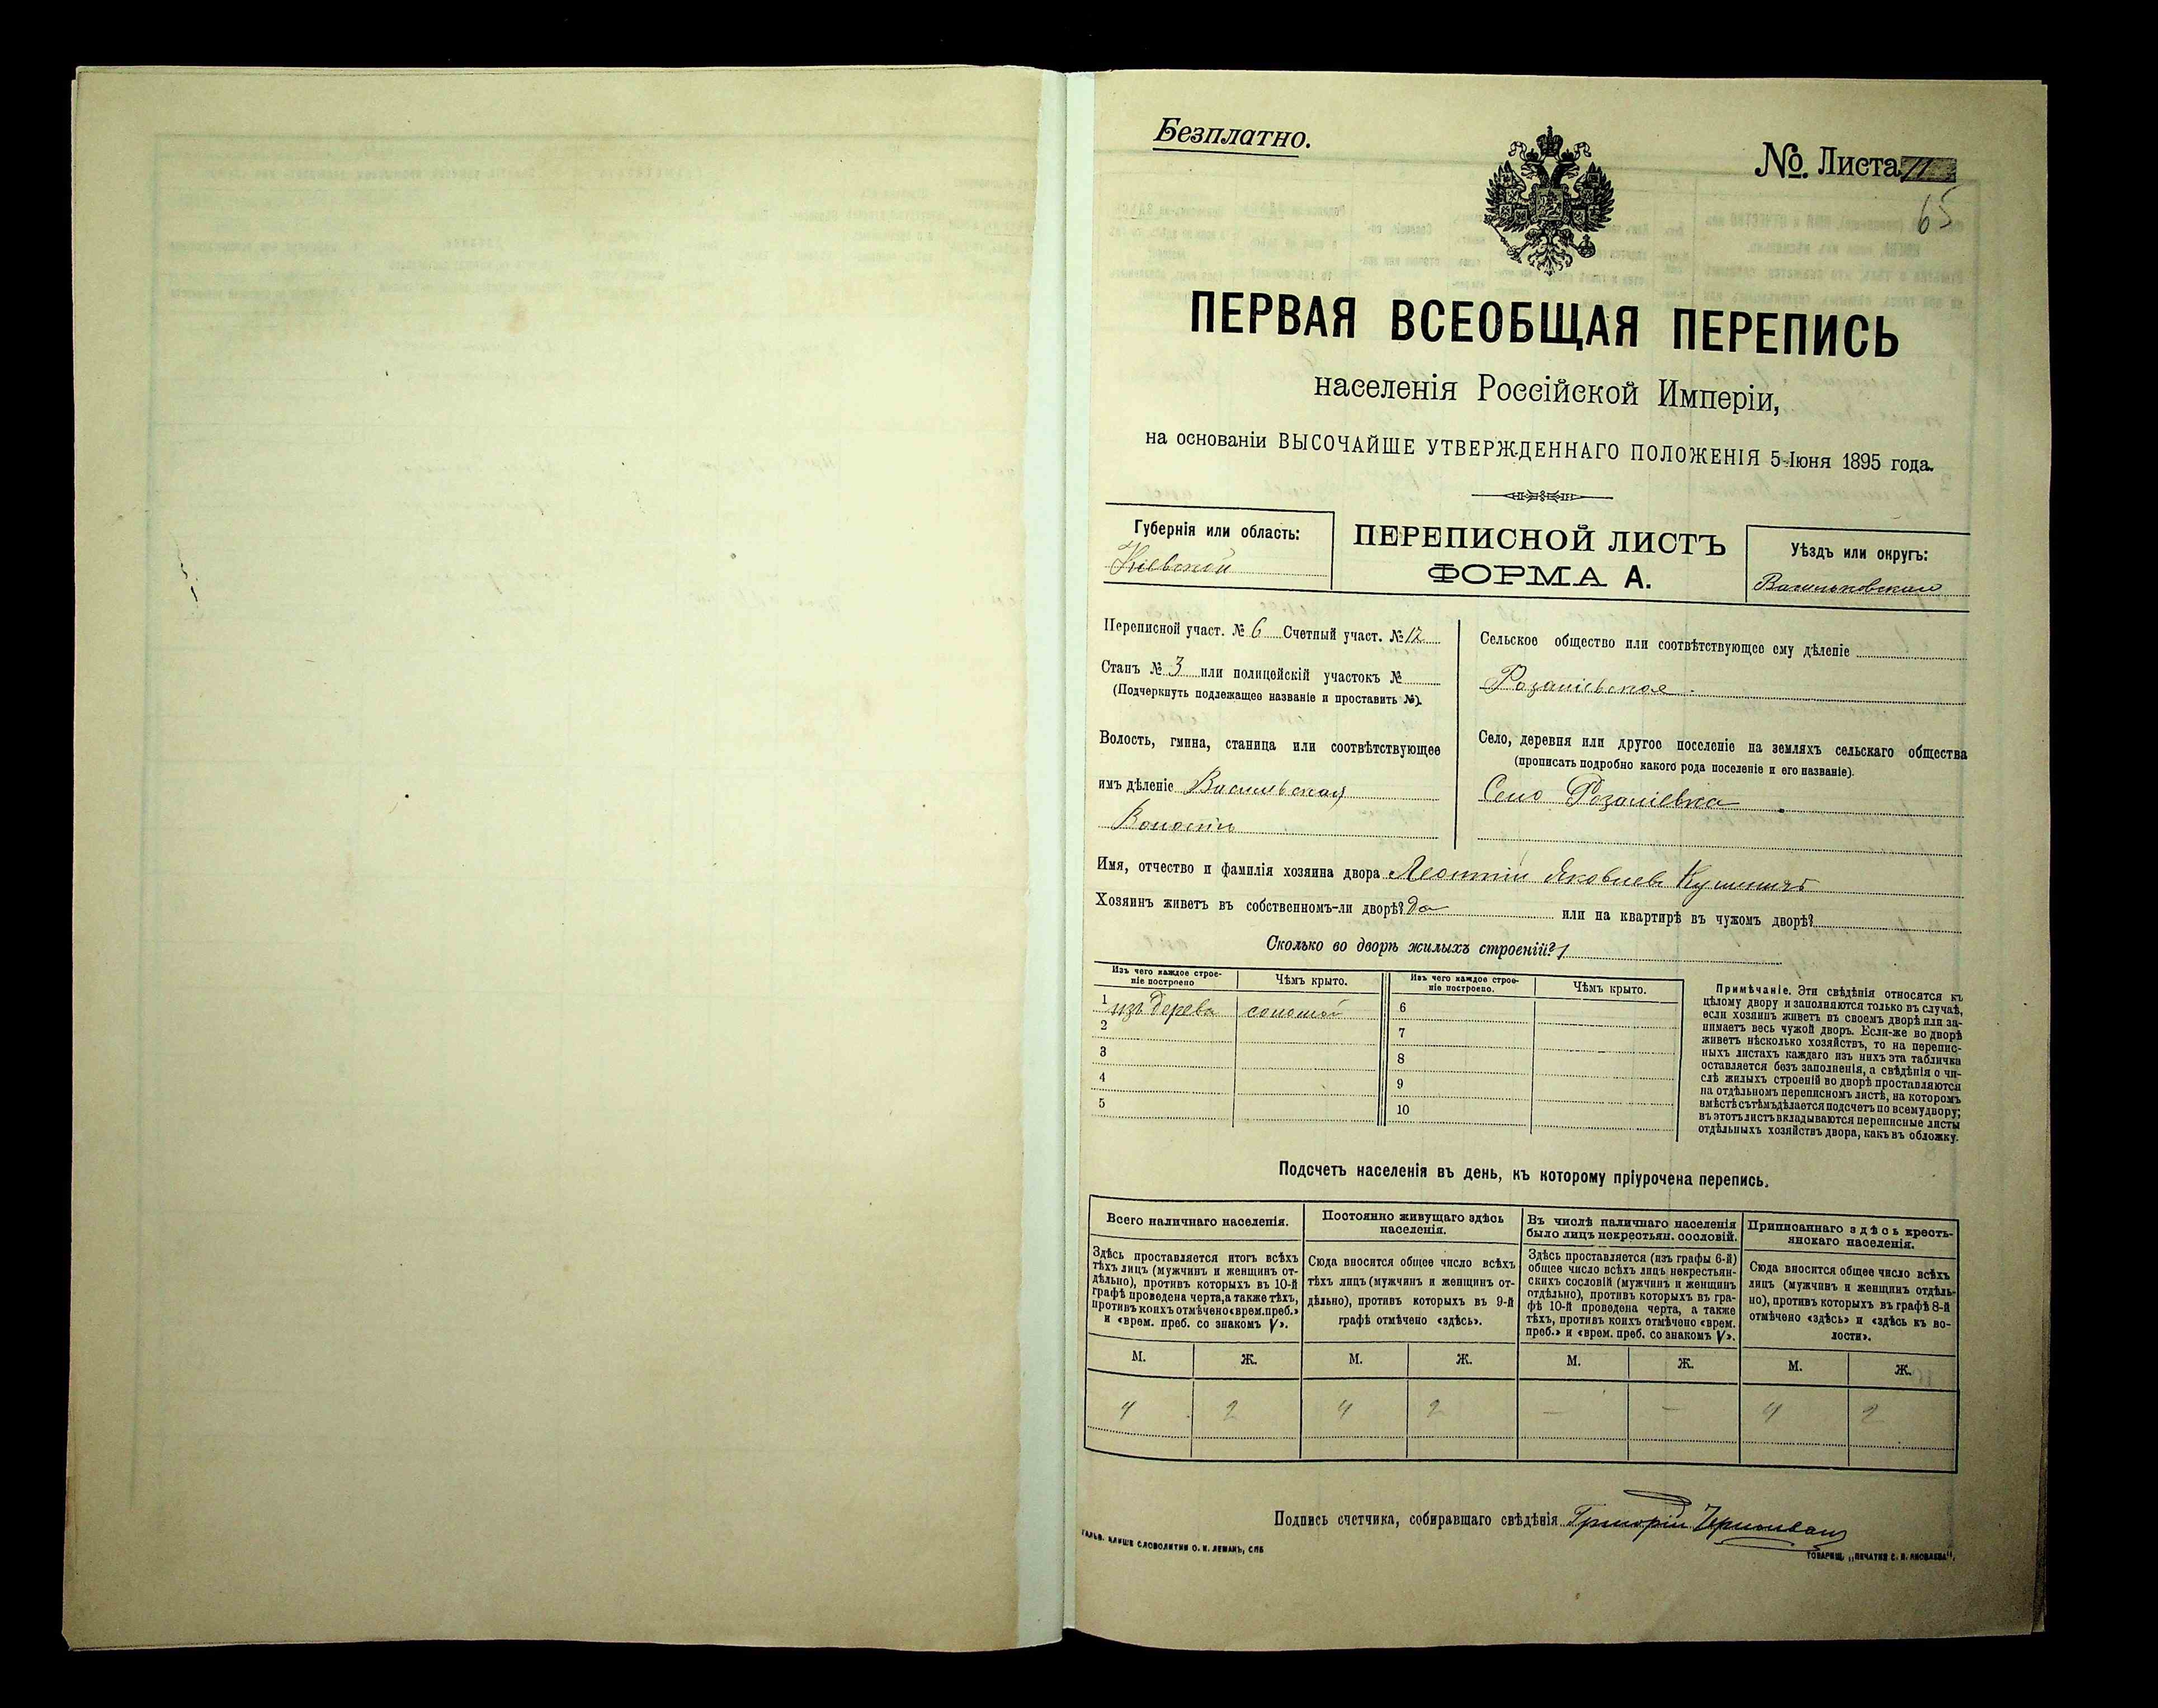 Безплатно.
№. Листа
65
ПЕРВАЯ ВСЕОБЩАЯ ПЕРЕПИСЬ
населенія Россійской Имперіи,
на основаніи ВЫСОЧАЙШЕ УТВЕРЖДЕННАГО ПОЛОЖЕНІЯ 5 Іюня 1895 года.
Губернія или область:
Кіевской
ПЕРЕПИСНОЙ ЛИСТЪ
ФОРМА А.
Уѣздъ или округъ:
Васильковскій
Переписной участ. № 6 Счетный участ. № 12
Станъ № 3 или полицейскій участокъ №
(Подчеркнуть подлежащее названіе и проставить №).
Волость, гмина, станица или соотвѣтствующее
имъ дѣленіе
Волость
Сельское общество или соотвѣтствующее ему дѣленіе
Розаліевское
Село, деревня или другое поселеніе на земляхъ сельскаго общества
(прописать подробно какого рода поселеніе и его названіе).
Село Розаліевка
Имя, отчество и фамилія хозяина двора Леонтій Яковлевъ
Хозяинъ живетъ въ собственномъ-ли дворѣ? Да или на квартирѣ въ чужомъ дворѣ?
Сколько во дворѣ жилыхъ строеній? 1
Изъ чего каждое строе-
ніе построено
Чѣмъ крыто.
Изъ чего каждое строе-
ніе построено.
Чѣмъ крыто.
1 изъ дерева соломой
2
3
4
5
6
7
8
9
10
Примѣчаніе. Эти свѣдѣнія относятся къ
цѣлому двору и заполняются только въ случаѣ,
если хозяинъ живетъ въ своемъ дворѣ или за-
нимаетъ весь чужой дворъ. Если-же во дворѣ
живетъ нѣсколько хозяйствъ, то на перепис-
ныхъ листахъ каждаго изъ нихъ эта табличка
оставляется безъ заполненія, а свѣдѣнія о чи-
слѣ жилыхъ строеній во дворѣ проставляются
на отдѣльномъ переписномъ листѣ, на которомъ
вмѣстѣ съ тѣмъ дѣлается подсчетъ по всему двору;
въ этотъ листъ вкладываются переписные листы
отдѣльныхъ хозяйствъ двора, какъ въ обложку.
Подсчетъ населенія въ день, къ которому пріурочена перепись.
Всего наличнаго населенія.
Здѣсь проставляется итогъ всѣхъ
тѣхъ лицъ (мужчинъ и женщинъ от-
дѣльно), противъ которыхъ въ 10-й
графѣ проведена черта, а также тѣхъ,
противъ коихъ отмѣчено «врем. преб.»
и «врем. преб. со знакомъ V».
Постоянно живущаго здѣсь
населенія.
Сюда вносится общее число всѣхъ
тѣхъ лицъ (мужчинъ и женщинъ от-
дѣльно), противъ которыхъ въ 9-й
графѣ отмѣчено «здѣсь».
Въ числѣ наличнаго населенія
было лицъ некрестьян. сословій.
Здѣсь проставляется (изъ графы 6-й)
общее число всѣхъ лицъ некрестьян-
скихъ сословій (мужчинъ и женщинъ
отдѣльно), противъ которыхъ въ гра-
фѣ 10-й проведена черта, а также
тѣхъ, противъ коихъ отмѣчено «врем.
преб.» и «врем. преб. со знакомъ V».
Приписаннаго здѣсь кресть-
янскаго населенія.
Сюда вносится общее число всѣхъ
лицъ (мужчинъ и женщинъ отдѣль-
но), противъ которыхъ въ графѣ 8-й
отмѣчено «здѣсь» и «здѣсь къ во-
лости».
М. Ж. М. Ж. М. Ж. М. Ж.
4 2 4 2 — — 4 2
Подпись счетчика, собиравшаго свѣдѣнія Григорій
ГАЛЬВ. КЛИШЕ СЛОВОЛИТНИ О. И. ЛЕМАНЪ, СПБ
ТОВАРИЩ. „ПЕЧАТНЯ С. П. ЯКОВЛЕВА".